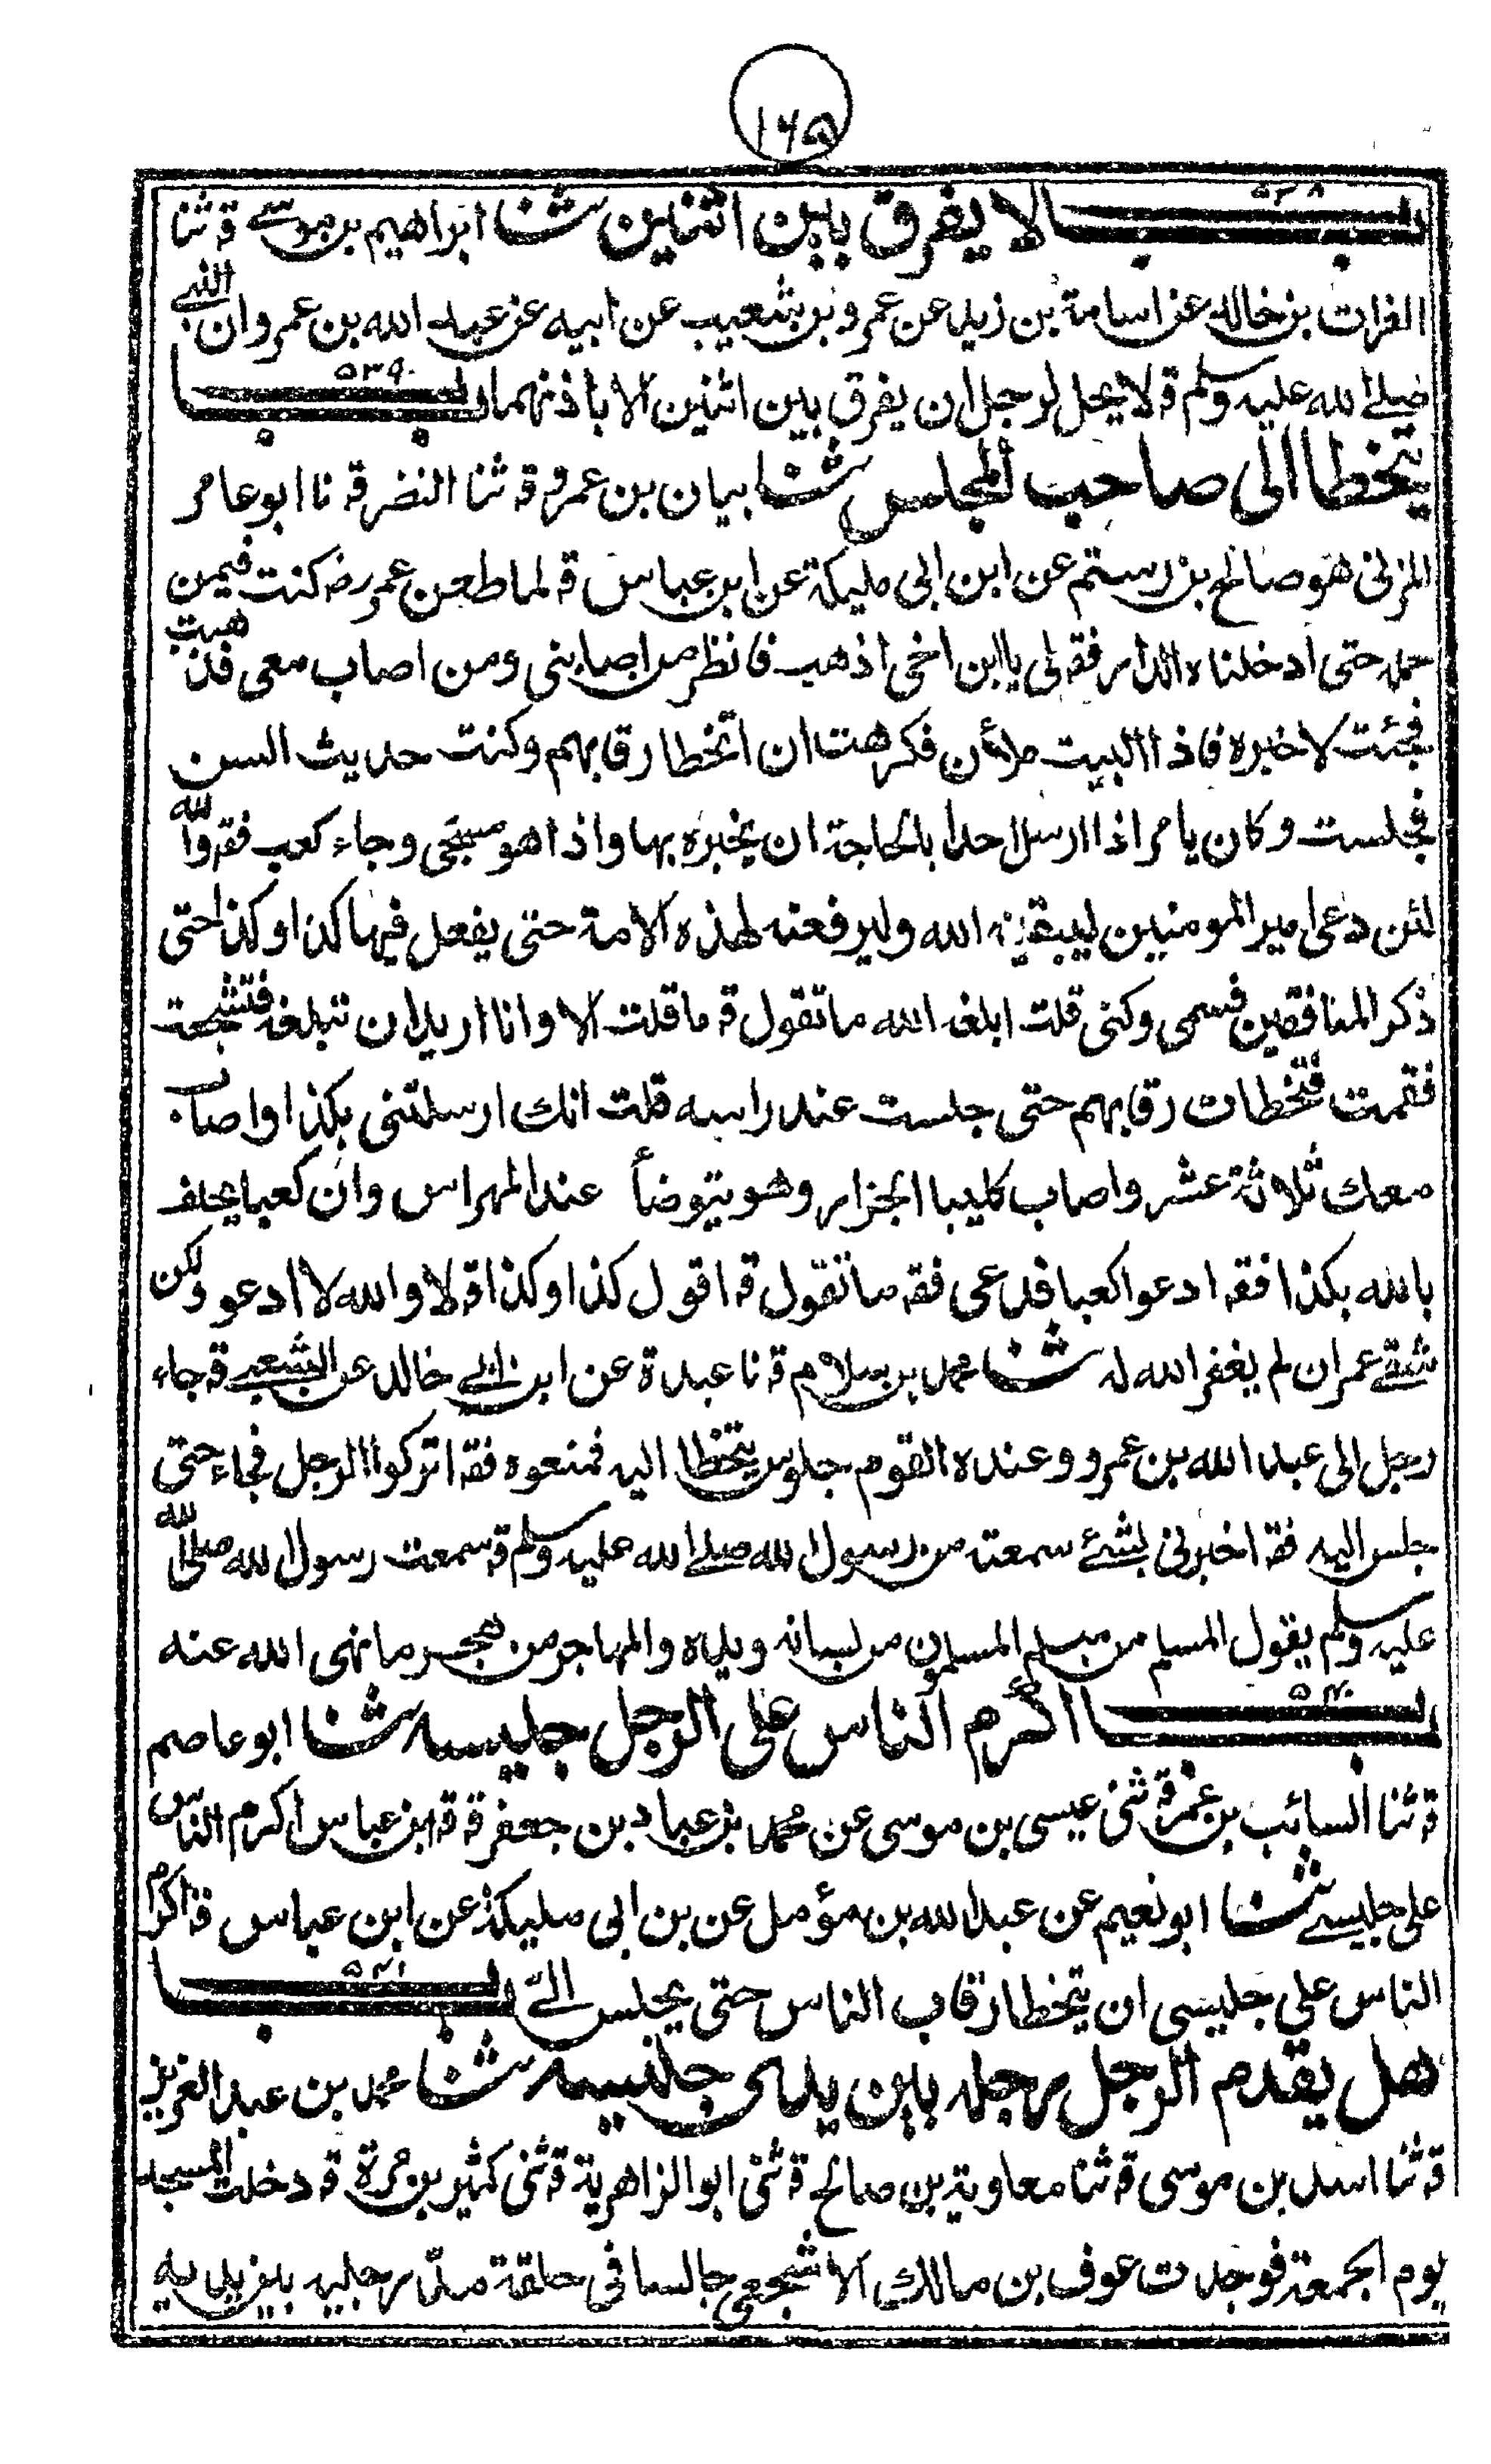 ١٦٥
باب ٥٣٨ لا يفرق بين اثنين ثنا ابراهيم بن موسى قہ ثنا
الفرات بن خالد عن اسامة بن زيد عن عمرو بن شعيب عن ابيه عن عبد الله بن عمرو ان النبي
صلى الله عليه وسلم قہ لا يحل لرجل ان يفرق بين اثنين الا باذنهما باب ٥٣٩
يتخطا الى صاحب المجلس ثنا بيان بن عمرو قہ ثنا النضر قہ نا ابو عامر
المزنى هو صالح بن رستم عن ابن ابى مليكة عن ابن عباس قہ لما طعن عمر رضہ كنت فيمن
حمله حتى ادخلناه الدار فقہ لى يا ابن اخى اذهب فانظر من اصابنى ومن اصاب معى فذهبت
فجئت لاخبره فاذا البيت ملأن فكرهت ان اتخطا رقابهم وكنت حديث السن
فجلست وكان يامر اذا ارسل احدا بالحاجة ان يخبره بها واذا هو مسجى وجاء كعب فقہ والله
لئن دعى امير المومنين ليبقينه الله وليرفعنه لهذه الامة حتى يفعل فيها كذا وكذا حتى
ذكر المنافقين فسمى وكنى قلت ابلغه الله ما تقول قہ ما قلت الا وانا اريد ان تبلغه فتشجعت
فقمت فتخطات رقابهم حتى جلست عند راسه قلت انك ارسلتنى بكذا واصاب
معك ثلاثة عشر واصاب كليبا الجزار وهو يتوضأ عند المهراس وان كعبا يحلف
بالله بكذا فقہ ادعوا كعبا فدعى فقہ ما تقول قہ اقول كذا وكذا قہ لا والله لا ادعو ولكن
شقى عمر ان لم يغفر الله له ثنا محمد بن سلام قہ نا عبدة عن ابن ابى خالد عن الشعبى قہ جاء
رجل الى عبد الله بن عمرو وعنده القوم جلوس يتخطا اليه فمنعوه فقہ اتركوا الرجل فجاء حتى
جلس اليه فقہ اخبرنى بشئ سمعته من رسول الله صلى الله عليه وسلم قہ سمعت رسول الله صلى الله
عليه وسلم يقول المسلم من سلم المسلمون من لسانه ويده والمهاجر من هجر ما نهى الله عنه
باب ٥٤٠ اكرم الناس على الرجل جليسه ثنا ابو عاصم
قہ ثنا السائب بن عمر قہ ثنى عيسى بن موسى عن محمد بن عباد بن جعفر قہ قہ ابن عباس اكرم الناس
على جليسى ثنا ابو نعيم عن عبد الله بن مؤمل عن بن ابى مليكة عن ابن عباس قہ اكرم
الناس على جليسى ان يتخطا رقاب الناس حتى يجلس الى باب ٥٤١
هل يقدم الرجل رجله بين يدى جليسه ثنا محمد بن عبد العزيز
قہ ثنا اسد بن موسى قہ ثنا معاوية بن صالح قہ ثنى ابو الزاهرية قہ ثنى كثير بن مرة قہ دخلت المسجد
يوم الجمعة فوجدت عوف بن مالك الاشجعى جالسا فى حلقة مد رجليه بين يديه